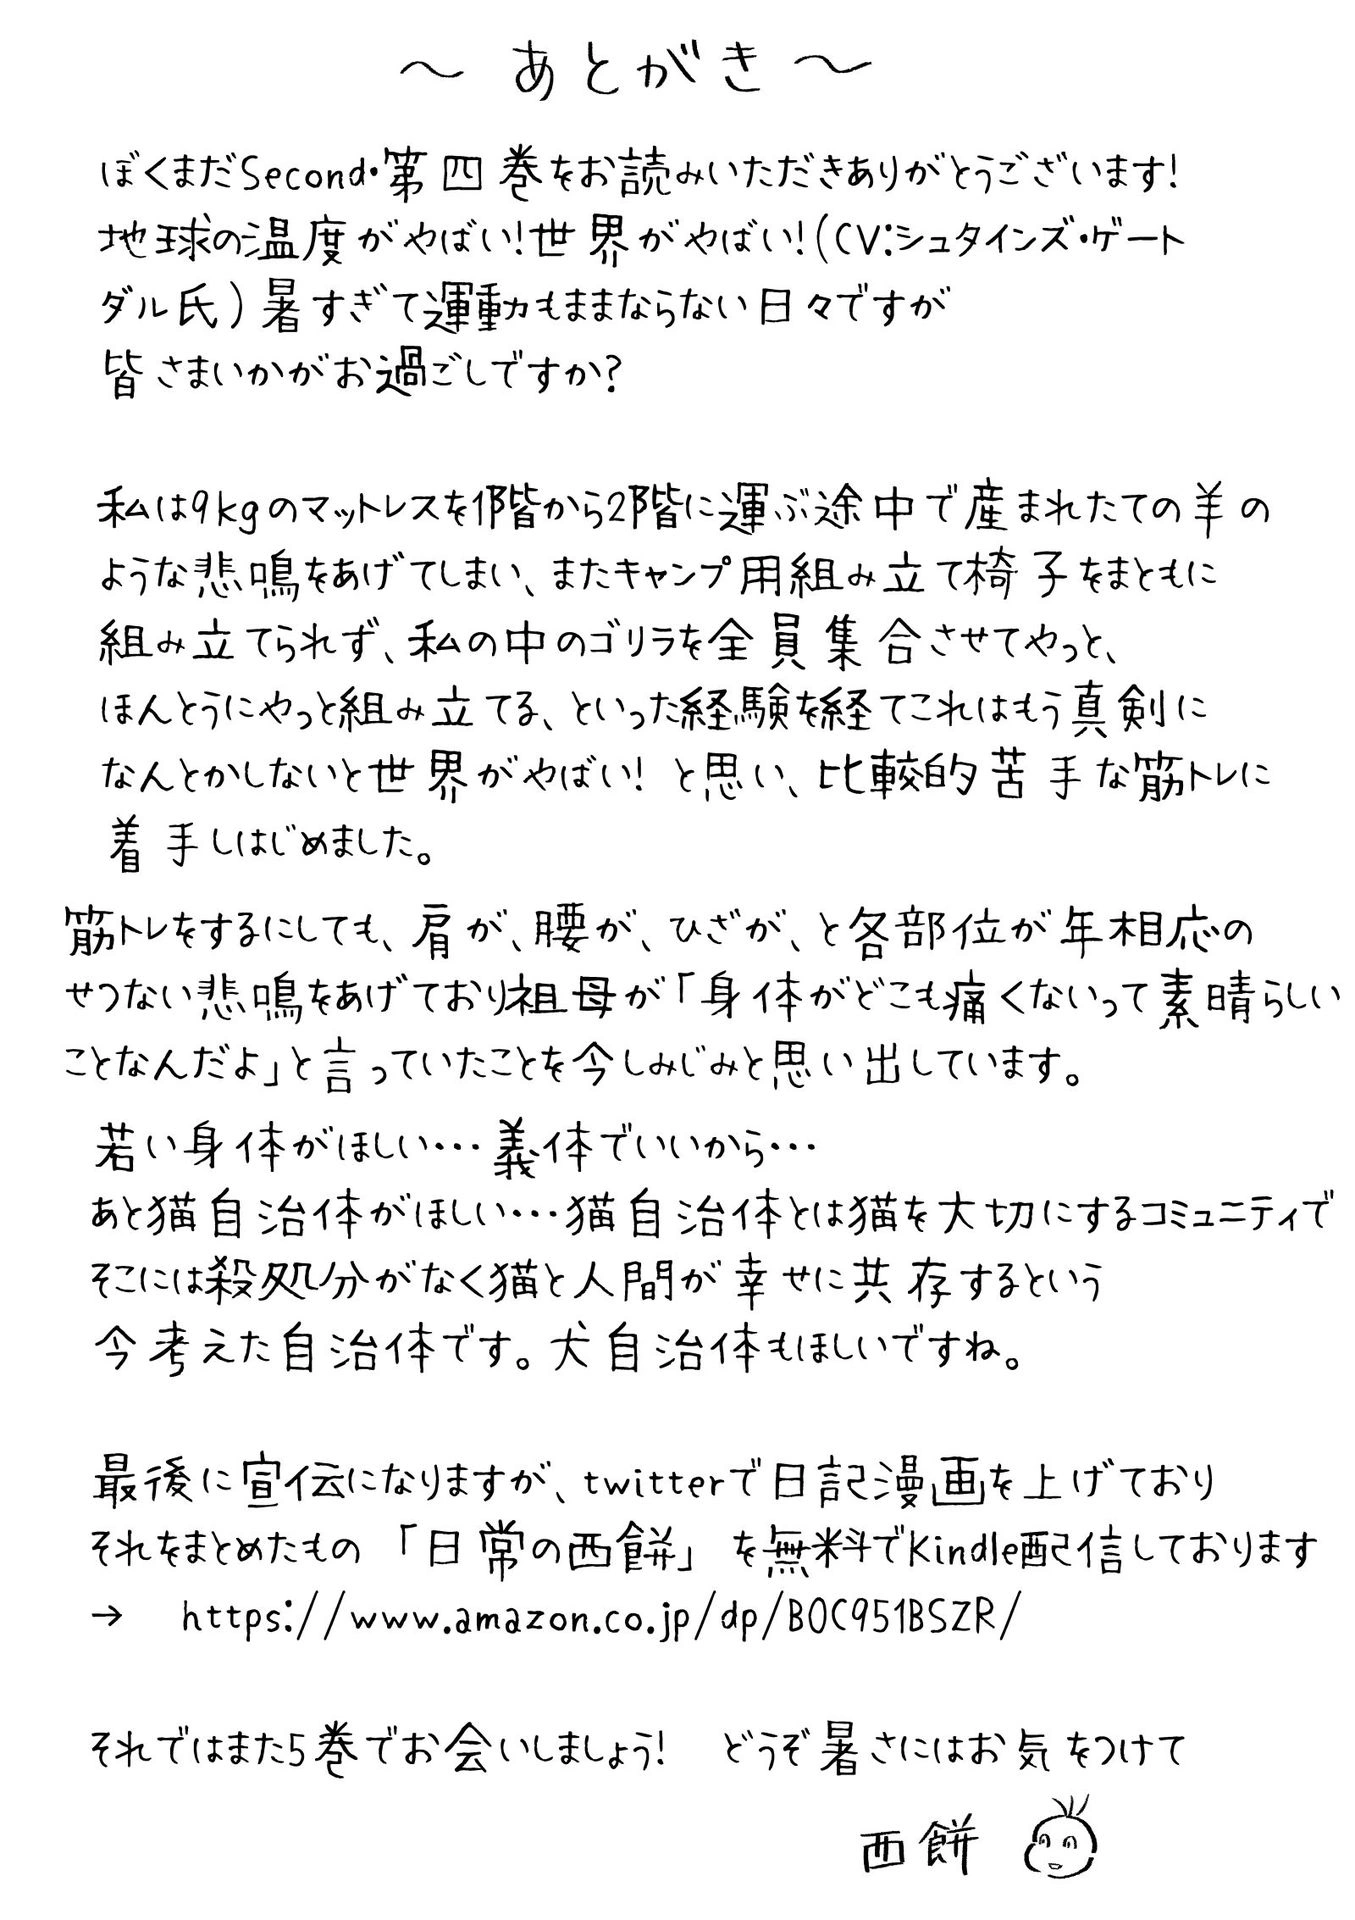 ～ あとがき ～
ぼくまだSecond・第四巻をお読みいただきありがとうございます!
地球の温度がやばい!世界がやばい!(CV:シュタインズ・ゲート
ダル氏)暑すぎて運動もままならない日々ですが
皆さまいかがお過ごしですか?
私は9kgのマットレスを1階から2階に運ぶ途中で産まれたての羊の
ような悲鳴をあげてしまい、またキャンプ用組み立て椅子をまともに
組み立てられず、私の中のゴリラを全員集合させてやっと、
ほんとうにやっと組み立てる、といった経験を経てこれはもう真剣に
なんとかしないと世界がやばい! と思い、比較的苦手な筋トレに
着手しはじめました。
筋トレをするにしても、肩が、腰が、ひざが、と各部位が年相応の
せつない悲鳴をあげており祖母が「身体がどこも痛くないって素晴らしい
ことなんだよ」と言っていたことを今しみじみと思い出しています。
若い身体がほしい・・・義体でいいから・・・
あと猫自治体がほしい・・・猫自治体とは猫を大切にするコミュニティで
そこには殺処分がなく猫と人間が幸せに共存するという
今考えた自治体です。犬自治体もほしいですね。
最後に宣伝になりますが、twitterで日記漫画を上げており
それをまとめたもの 「日常の西餅」 を無料でKindle配信しております
→ https://www.amazon.co.jp/dp/B0C951BSZR/
それではまた5巻でお会いしましょう! どうぞ暑さにはお気をつけて
西餅